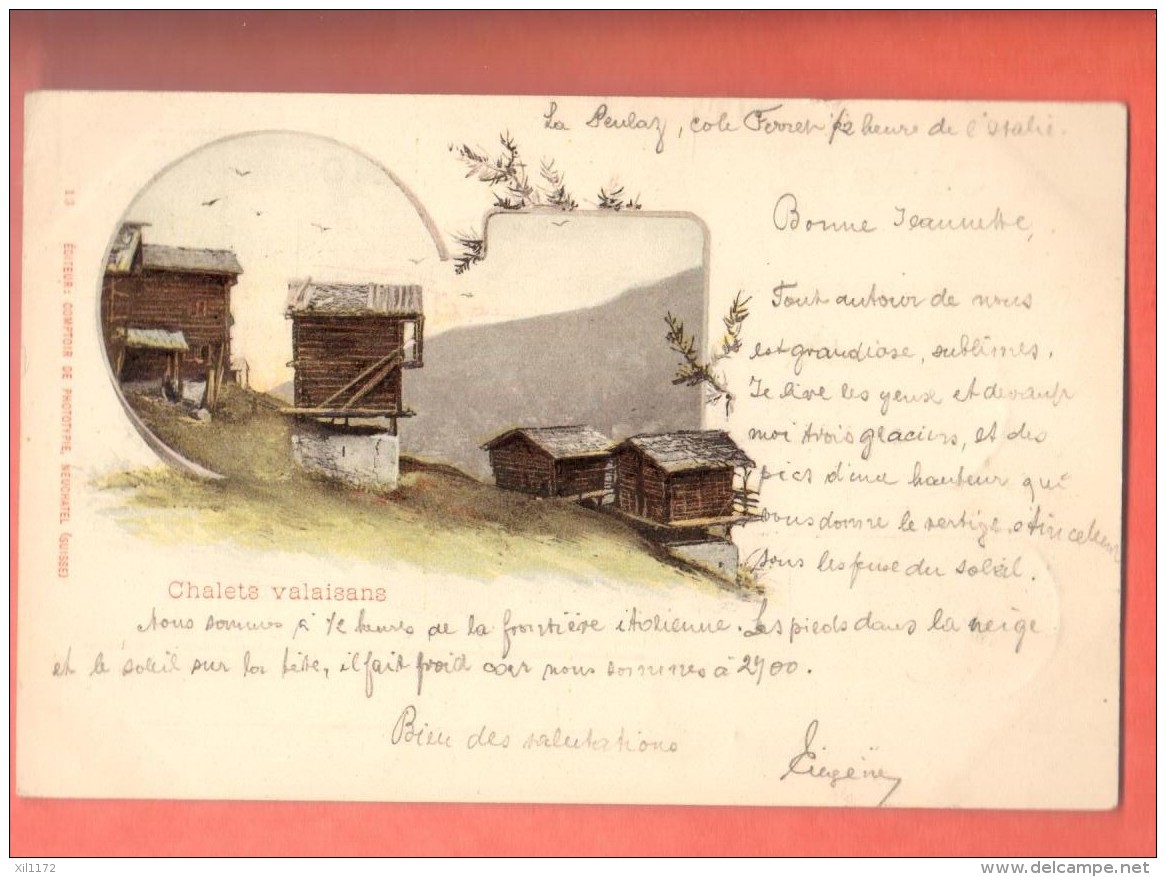 La Peulaz, cole Ferret 1/2 heure de l'Italie.
Bonne Jeannette,
Tout autour de nous
est grandiose, sublimes.
Je live les yeux et devant
moi trois glaciers, et des
pics d'une hauteur qui
vous donne le vertige, étincellent
sous les feux du soleil.
Chalets valaisans
Nous sommes à 1/2 heures de la frontière italienne. Les pieds dans la neige
et le soleil sur la tête, il fait froid car nous sommes à 2700.
Bien des salutations
Eugénie
13 ÉDITEUR: COMPTOIR DE PHOTOTYPIE, NEUCHATEL (SUISSE)
xil1172
www.delcampe.net